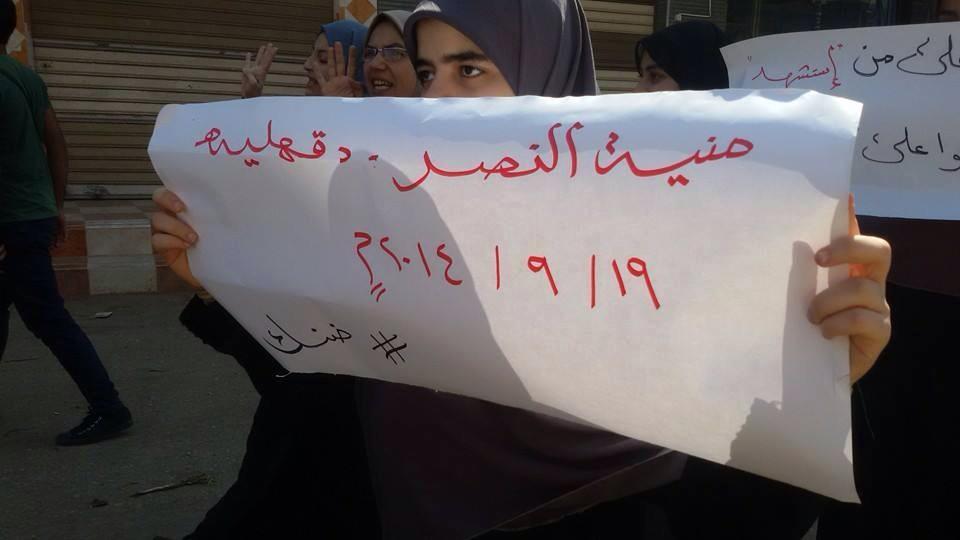 منية النصر . دقهليه
١٩ / ٩ / ٢٠١٤ م
# ضنك
على من "إستشهد"
وا على